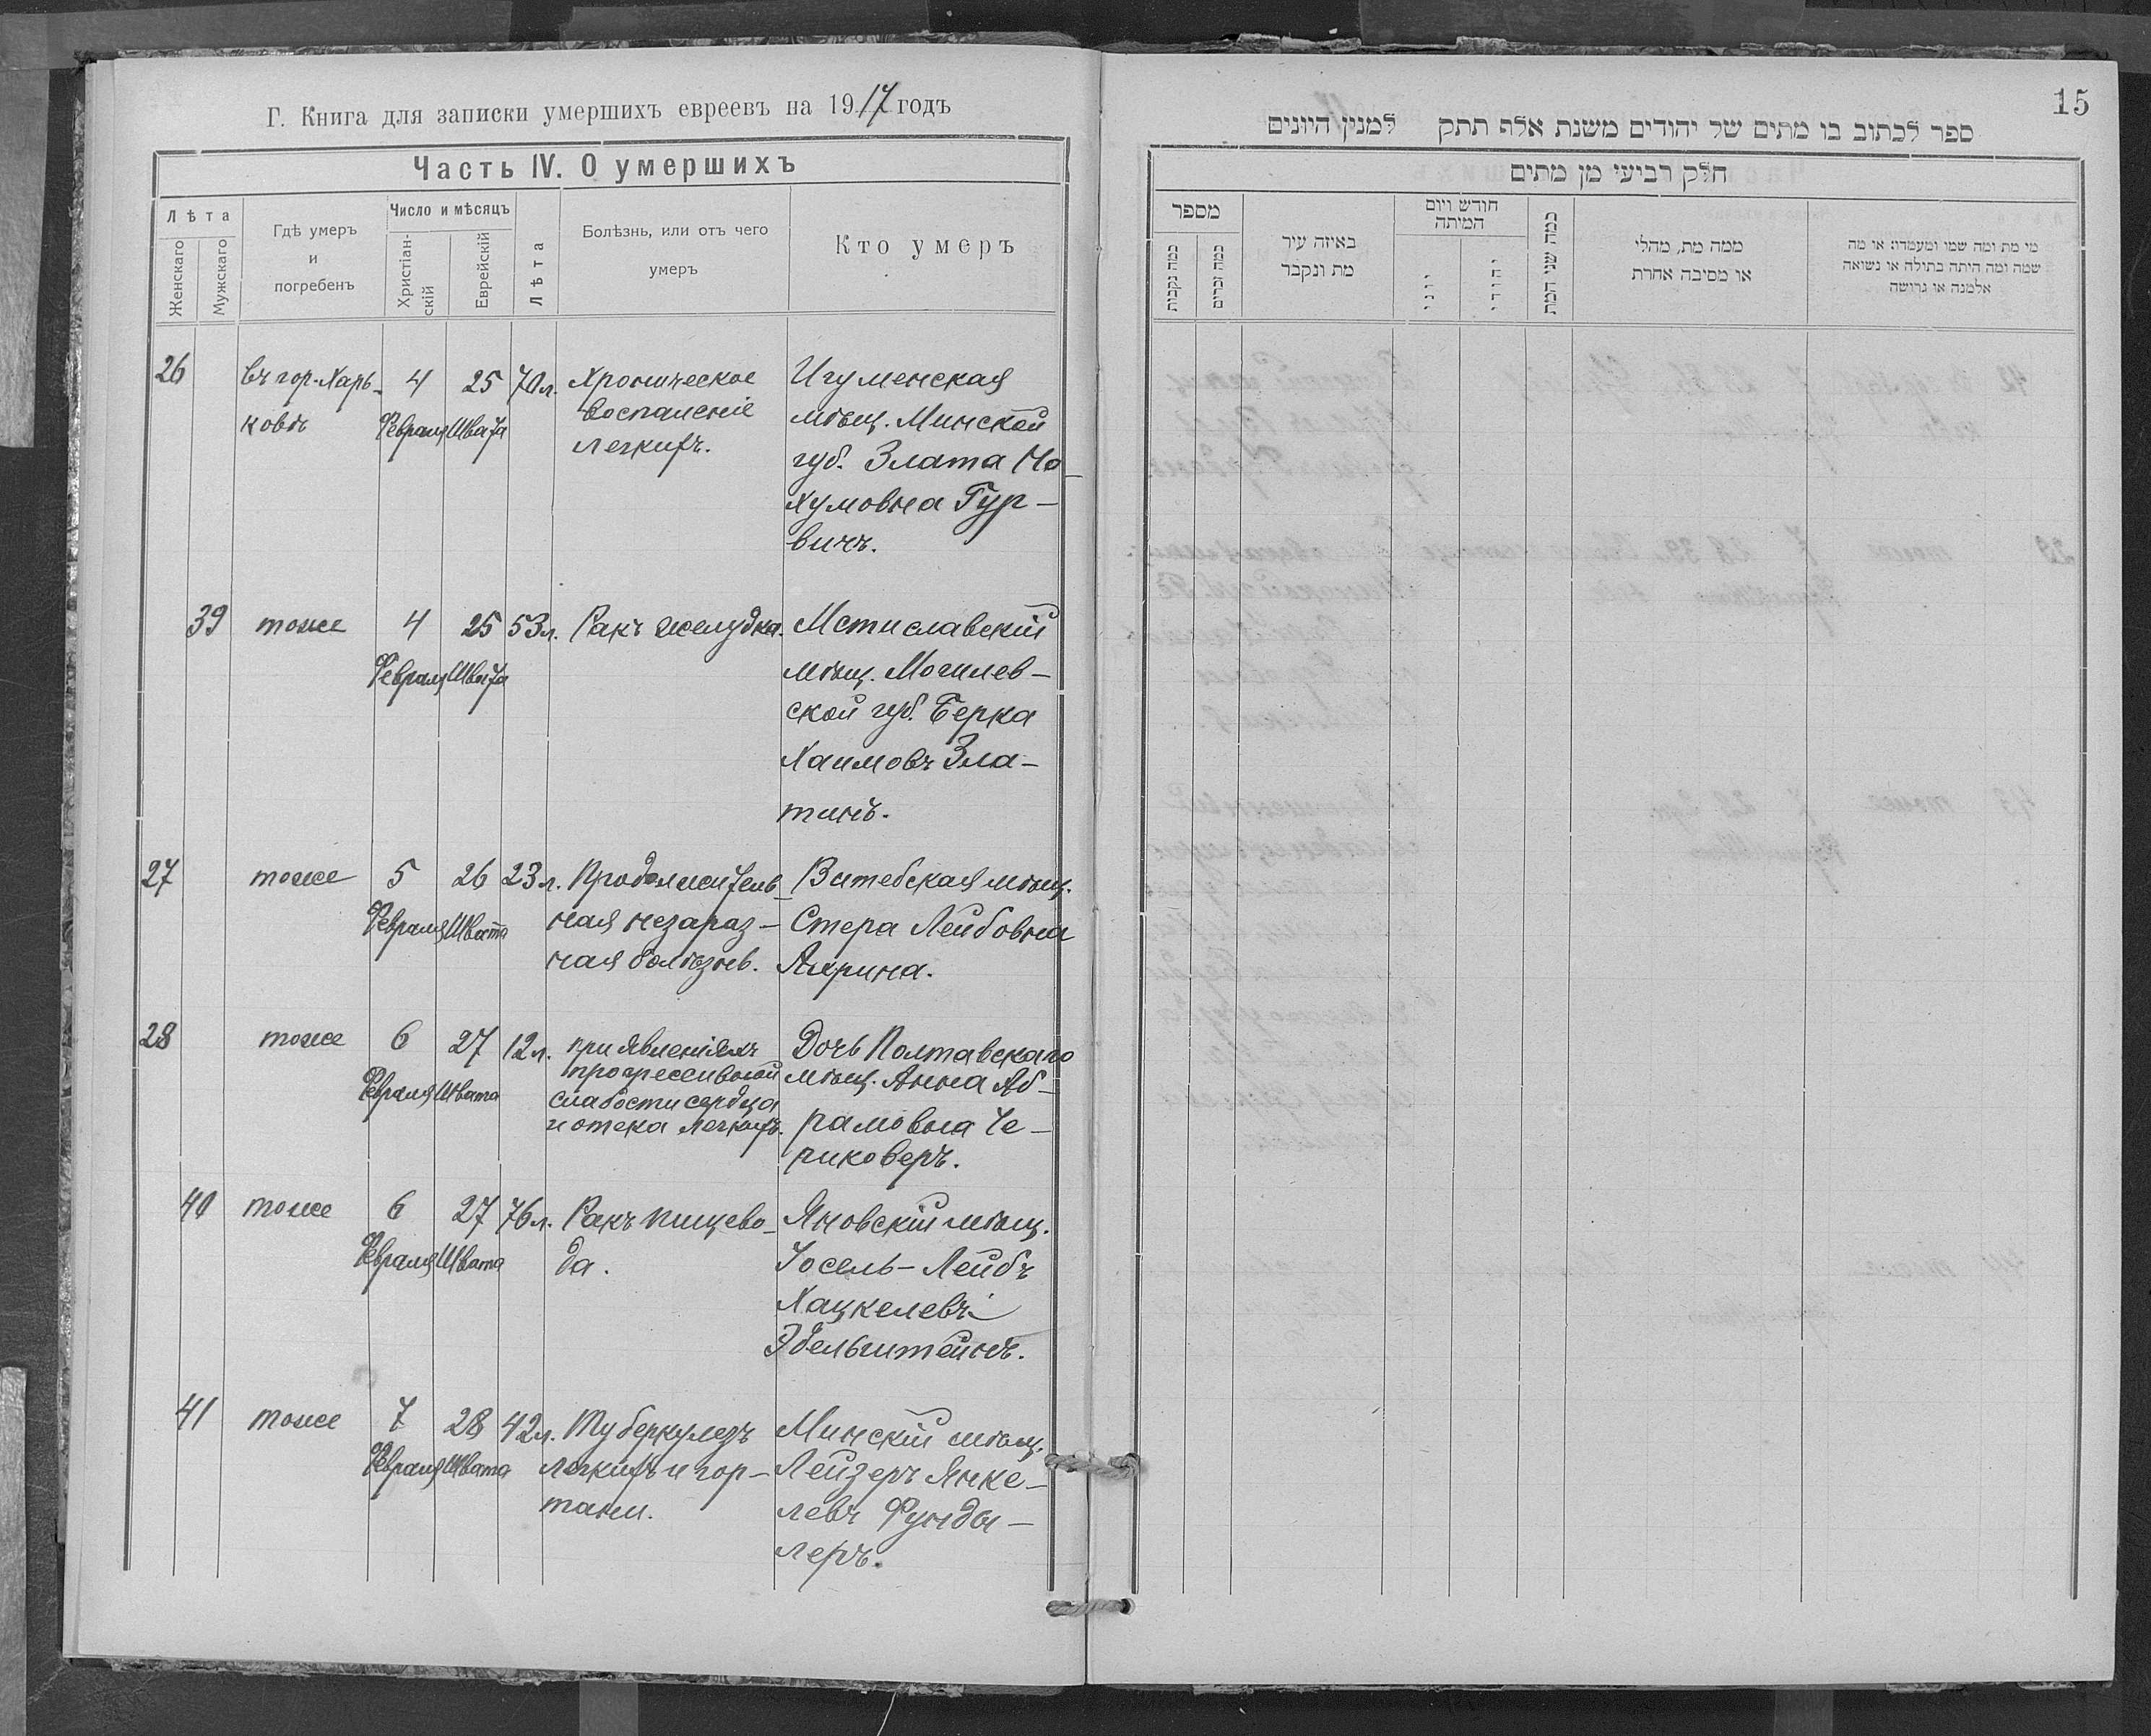 Г. Книга для записки умершихъ евреевъ на 1917 годъ
Часть IV. О умершихъ
Лѣта
Женскаго
Мужскаго
Гдѣ умеръ
и
погребенъ
Число и мѣсяцъ
Христіан-
скій
Еврейскій
Лѣта
Болѣзнь, или отъ чего
умеръ
Кто умеръ
26 въ гор. Харь- 4 25 70 л. Хроническое Игуменская
ковѣ Февраля Швата воспаленіе мѣщ. Минской
легкихъ. губ. Злата Но-
хумовна Гур-
вичъ.
39 тоже 4 25 53 л. Ракъ желудка. Мстиславскій
Февраля Швата мѣщ. Могилев-
ской губ. Берка
Хаимовъ Зла-
тинъ.
27 тоже 5 26 23 л. Продолжитель- Витебская мѣщ.
Февраля Швата ная незараз- Стера Лейбовна
ная болѣзнь. Ахрина.
28 тоже 6 27 12 л. при явленіяхъ Дочь Полтавскаго
Февраля Швата прогрессивной мѣщ. Анна Аб-
слабости сердца рамовна Че-
и отека легкихъ. риковеръ.
40 тоже 6 27 76 л. Ракъ пищево- Яновскій мѣщ.
Февраля Швата да. Іосель-Лейбъ
Хацкелевъ
Эдельштейнъ.
41 тоже 7 28 42 л. Туберкулезъ Минскій мѣщ.
Февраля Швата легкихъ и гор- Лейзеръ Янке-
тани. левъ Фунды-
леръ.
15
ספר לכתוב בו מתים של יהודים משנת אלף תתק למנין היונים
חלק רביעי מן מתים
מספר
כמה נקבות
כמה זכרים
באיזה עיר
מת ונקבר
חודש ויום
המיתה
יוני
יהודי
כמה שני המת
ממה מת, מהלי
או מסיבה אחרת
מי מת ומה שמו ומעמדו: או מה
שמה ומה היתה בתולה או נשואה
אלמנה או גרושה